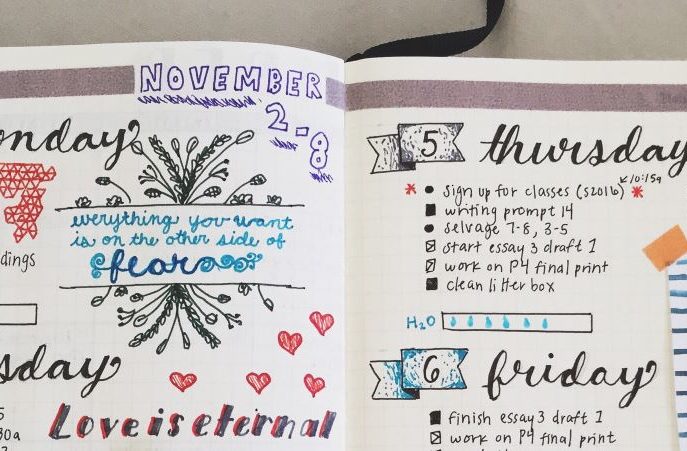 NOVEMBER
2-8
onday
everything you want
is on the other side of
fear
dings
sday
5
30a
Love is eternal
5 thursday
10:15a
sign up for classes (S2016)
writing prompt 14
selvage 7-8, 3-5
start essay 3 draft 1
work on P4 final print
clean litter box
H2O
6 friday
finish essay 3 draft 1
work on P4 final print